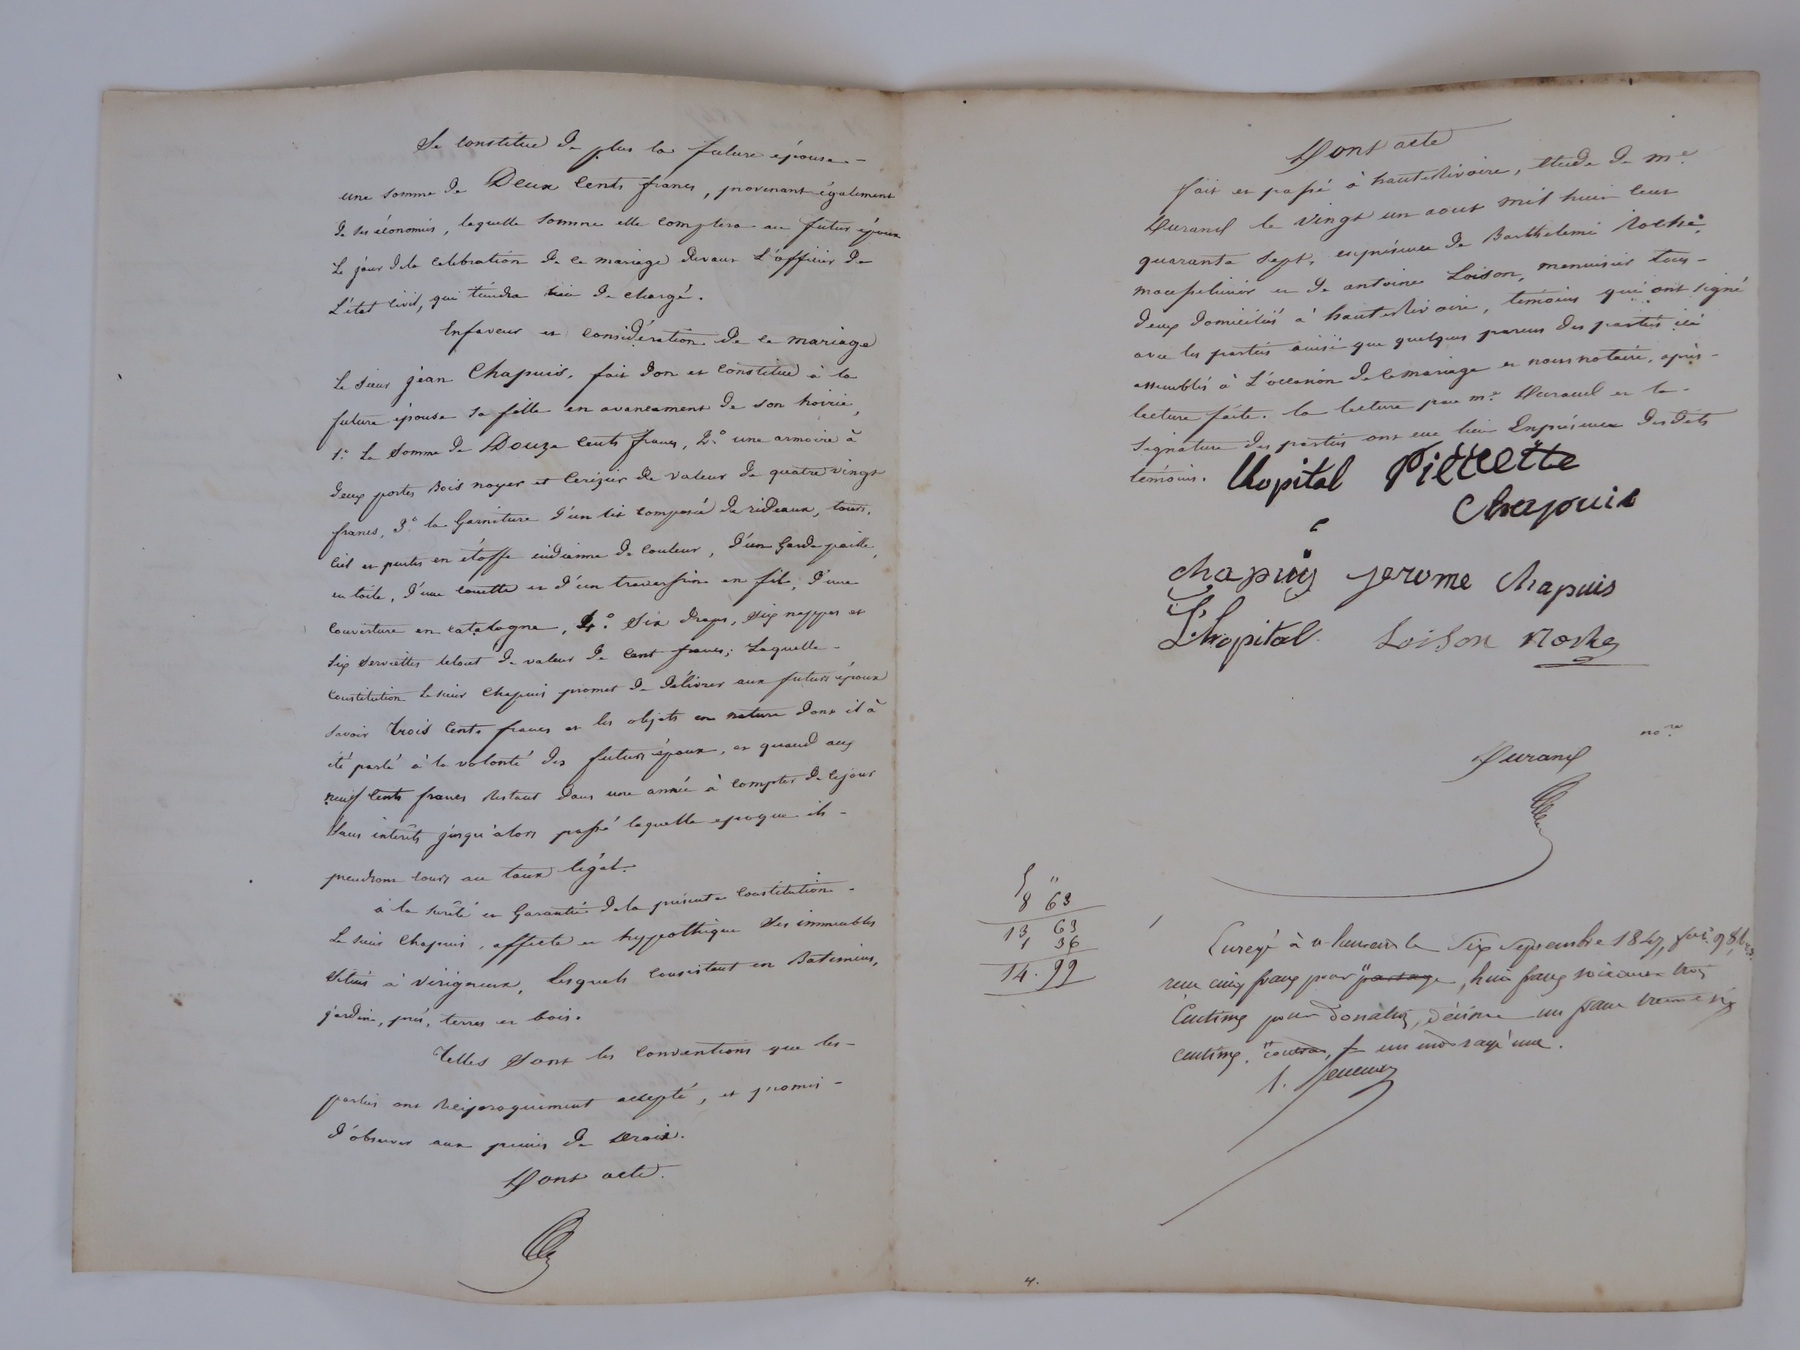 Se constitue de plus la future épouse -
une somme de Deux cents francs, provenant également
de ses économies, laquelle somme elle comptera au futur époux
le jour de la célébration de ce mariage devant l'officier de
l'état civil, qui tiendra lieu de charge.
Enfaveur et considération de ce mariage
le sieur jean Chapuis, fait don et constitue à la
future épouse sa fille en avancement de son hoirie,
1° La somme de Douze cents francs, 2° une armoire à
deux portes bois noyer et cerizier de valeur de quatre vingt
francs, 3° la Garniture d'un lit composé de rideaux, tours,
ciel et pentes en étoffe indienne de couleur, d'un Garde paille,
en toile, d'une couette et d'un traversin en fil, d'une
couverture en catalogne, 4° Six draps, six nappes et
six serviettes letout de valeur de cent francs; Laquelle -
constitution le sieur Chapuis promet de délivrer aux futurs époux
savoir trois cents francs et les objets en nature dont il à
été parlé à la volonté des futurs époux, et quand aux
neuf cents francs restant dans une année à compter de cejour
sans intérêts jusqu'alors passé laquelle epoque ils -
prendront cours au taux légal.
à la sureté et Garantie de la présente constitution -
le sieur Chapuis, affecte et hyppothèque ses immeubles
situés à virigneux, lesquels consistent en Batiments,
jardin, prés, terres et bois.
Telles sont les conventions que les -
parties ont réciproquement accepté, et promis -
d'observer aux peines de droit.
Dont acte.
Dont acte
fait et passé à hauterivoire, étude de me
Durand le vingt un aout mil huit cent
quarante sept, enprésence de Barthelemi Roche,
et de antoine Loison, menuisier tous -
deux domiciliés à hauterivoire, témoins qui ont signé
avec les parties ainsi que quelques parens des parties ici
assemblés à l'occasion de ce mariage et nous notaire, après -
lecture faite. la lecture par me Durand et la -
signature des parties ont eue lieu Enprésence desdits
témoins. Lhopital Pierrette
Chapuis
chapuis jerome chapuis
L'hopital Loison Roche
nore
Durand
5 "
8 63
13 63
1 36
14. 99
Enregé à le six septembre 1847, fo 98
reçu cinq francs pour , huit francs soixante trois
centimes pour donation, décime un franc trente six
centimes. un mot rayé nul.
4.